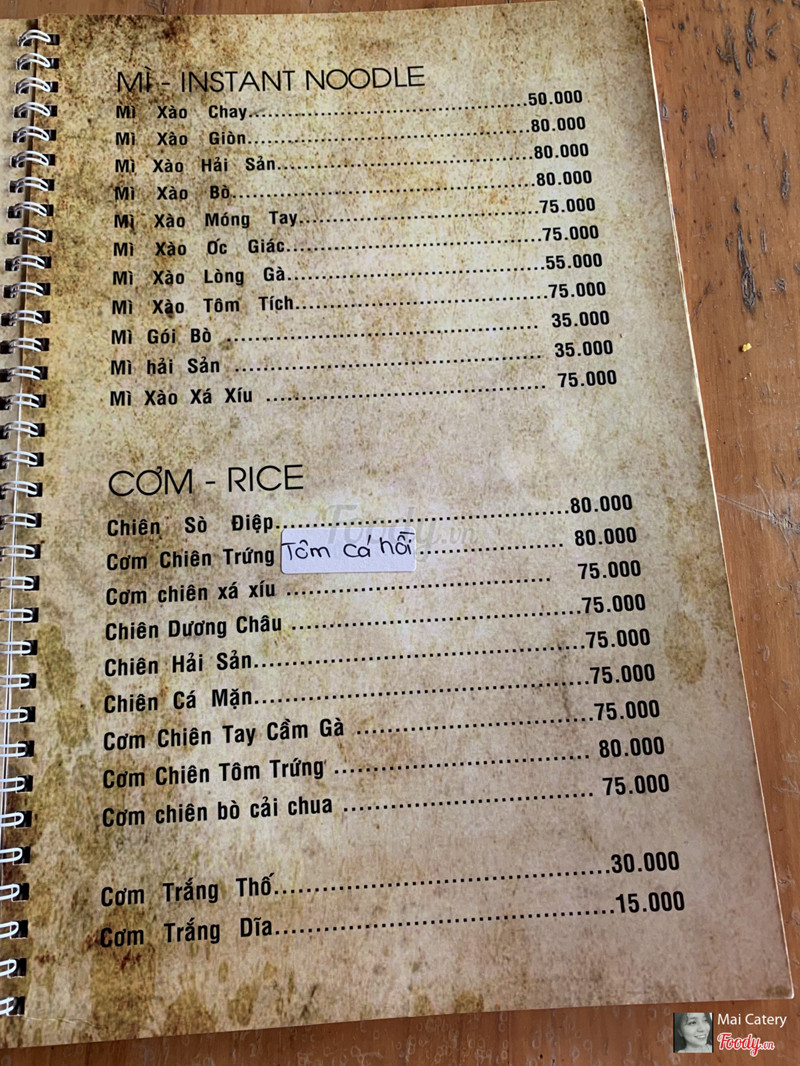 MÌ - INSTANT NOODLE
Mì Xào Chay........................................50.000
Mì Xào Giòn........................................80.000
Mì Xào Hải Sản.....................................80.000
Mì Xào Bò..........................................80.000
Mì Xào Móng Tay....................................75.000
Mì Xào Ốc Giác.....................................75.000
Mì Xào Lòng Gà.....................................55.000
Mì Xào Tôm Tích....................................75.000
Mì Gói Bò ........................................ 35.000
Mì hải Sản ....................................... 35.000
Mì Xào Xá Xíu .................................... 75.000
CƠM - RICE
Chiên Sò Điệp......................................80.000
Cơm Chiên Trứng Tôm cá hồi .................. 80.000
Cơm chiên xá xíu ................................. 75.000
Chiên Dương Châu ..................................75.000
Chiên Hải Sản......................................75.000
Chiên Cá Mặn.......................................75.000
Cơm Chiên Tay Cầm Gà ..............................75.000
Cơm Chiên Tôm Trứng .............................. 80.000
Cơm chiên bò cải chua ............................ 75.000
Cơm Trắng Thố......................................30.000
Cơm Trắng Dĩa......................................15.000
Foody.vn
Mai Catery
Foody.vn